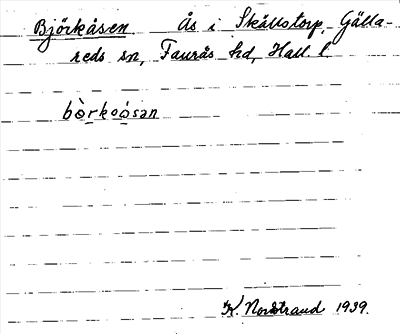 Björkåsen Ås i Skällstorp, Gälla-
reds sn, Faurås hd, Hall. l.
bò̀rkoȯ́sən
K. Nordstrand 1939.